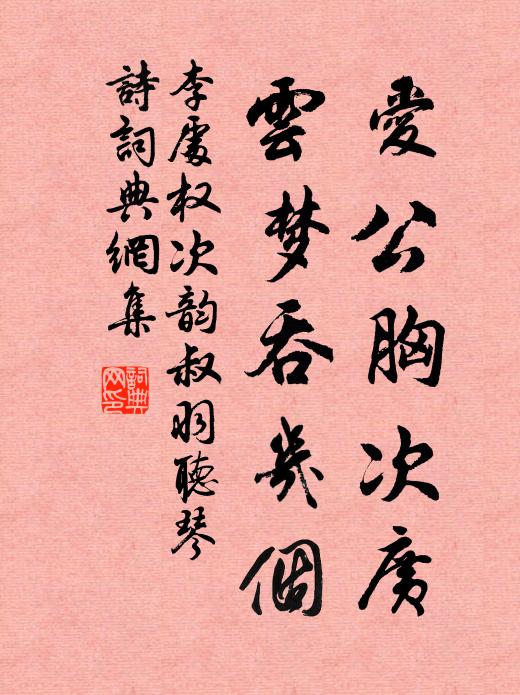 愛公胸次廣
雲梦吞幾個
李處权次韵叔羽聽琴
詩詞典網集
詞典网印